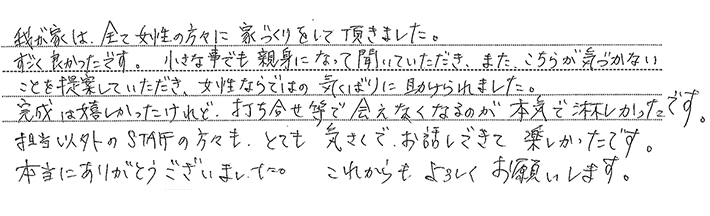 我が家は、全て女性の方々に家づくりをして頂きました。
すごく良かったです。小さな事でも親身になって聞いていただき、また、こちらが気づかない
ことを提案していただき、女性ならではの気くばりに助けられました。
完成は嬉しかったけれど、打ち合せ等で会えなくなるのが本気で淋しかったです。
担当以外のSTAFFの方々も、とても気さくで、お話しできて楽しかったです。
本当にありがとうございました。これからもよろしくお願いします。